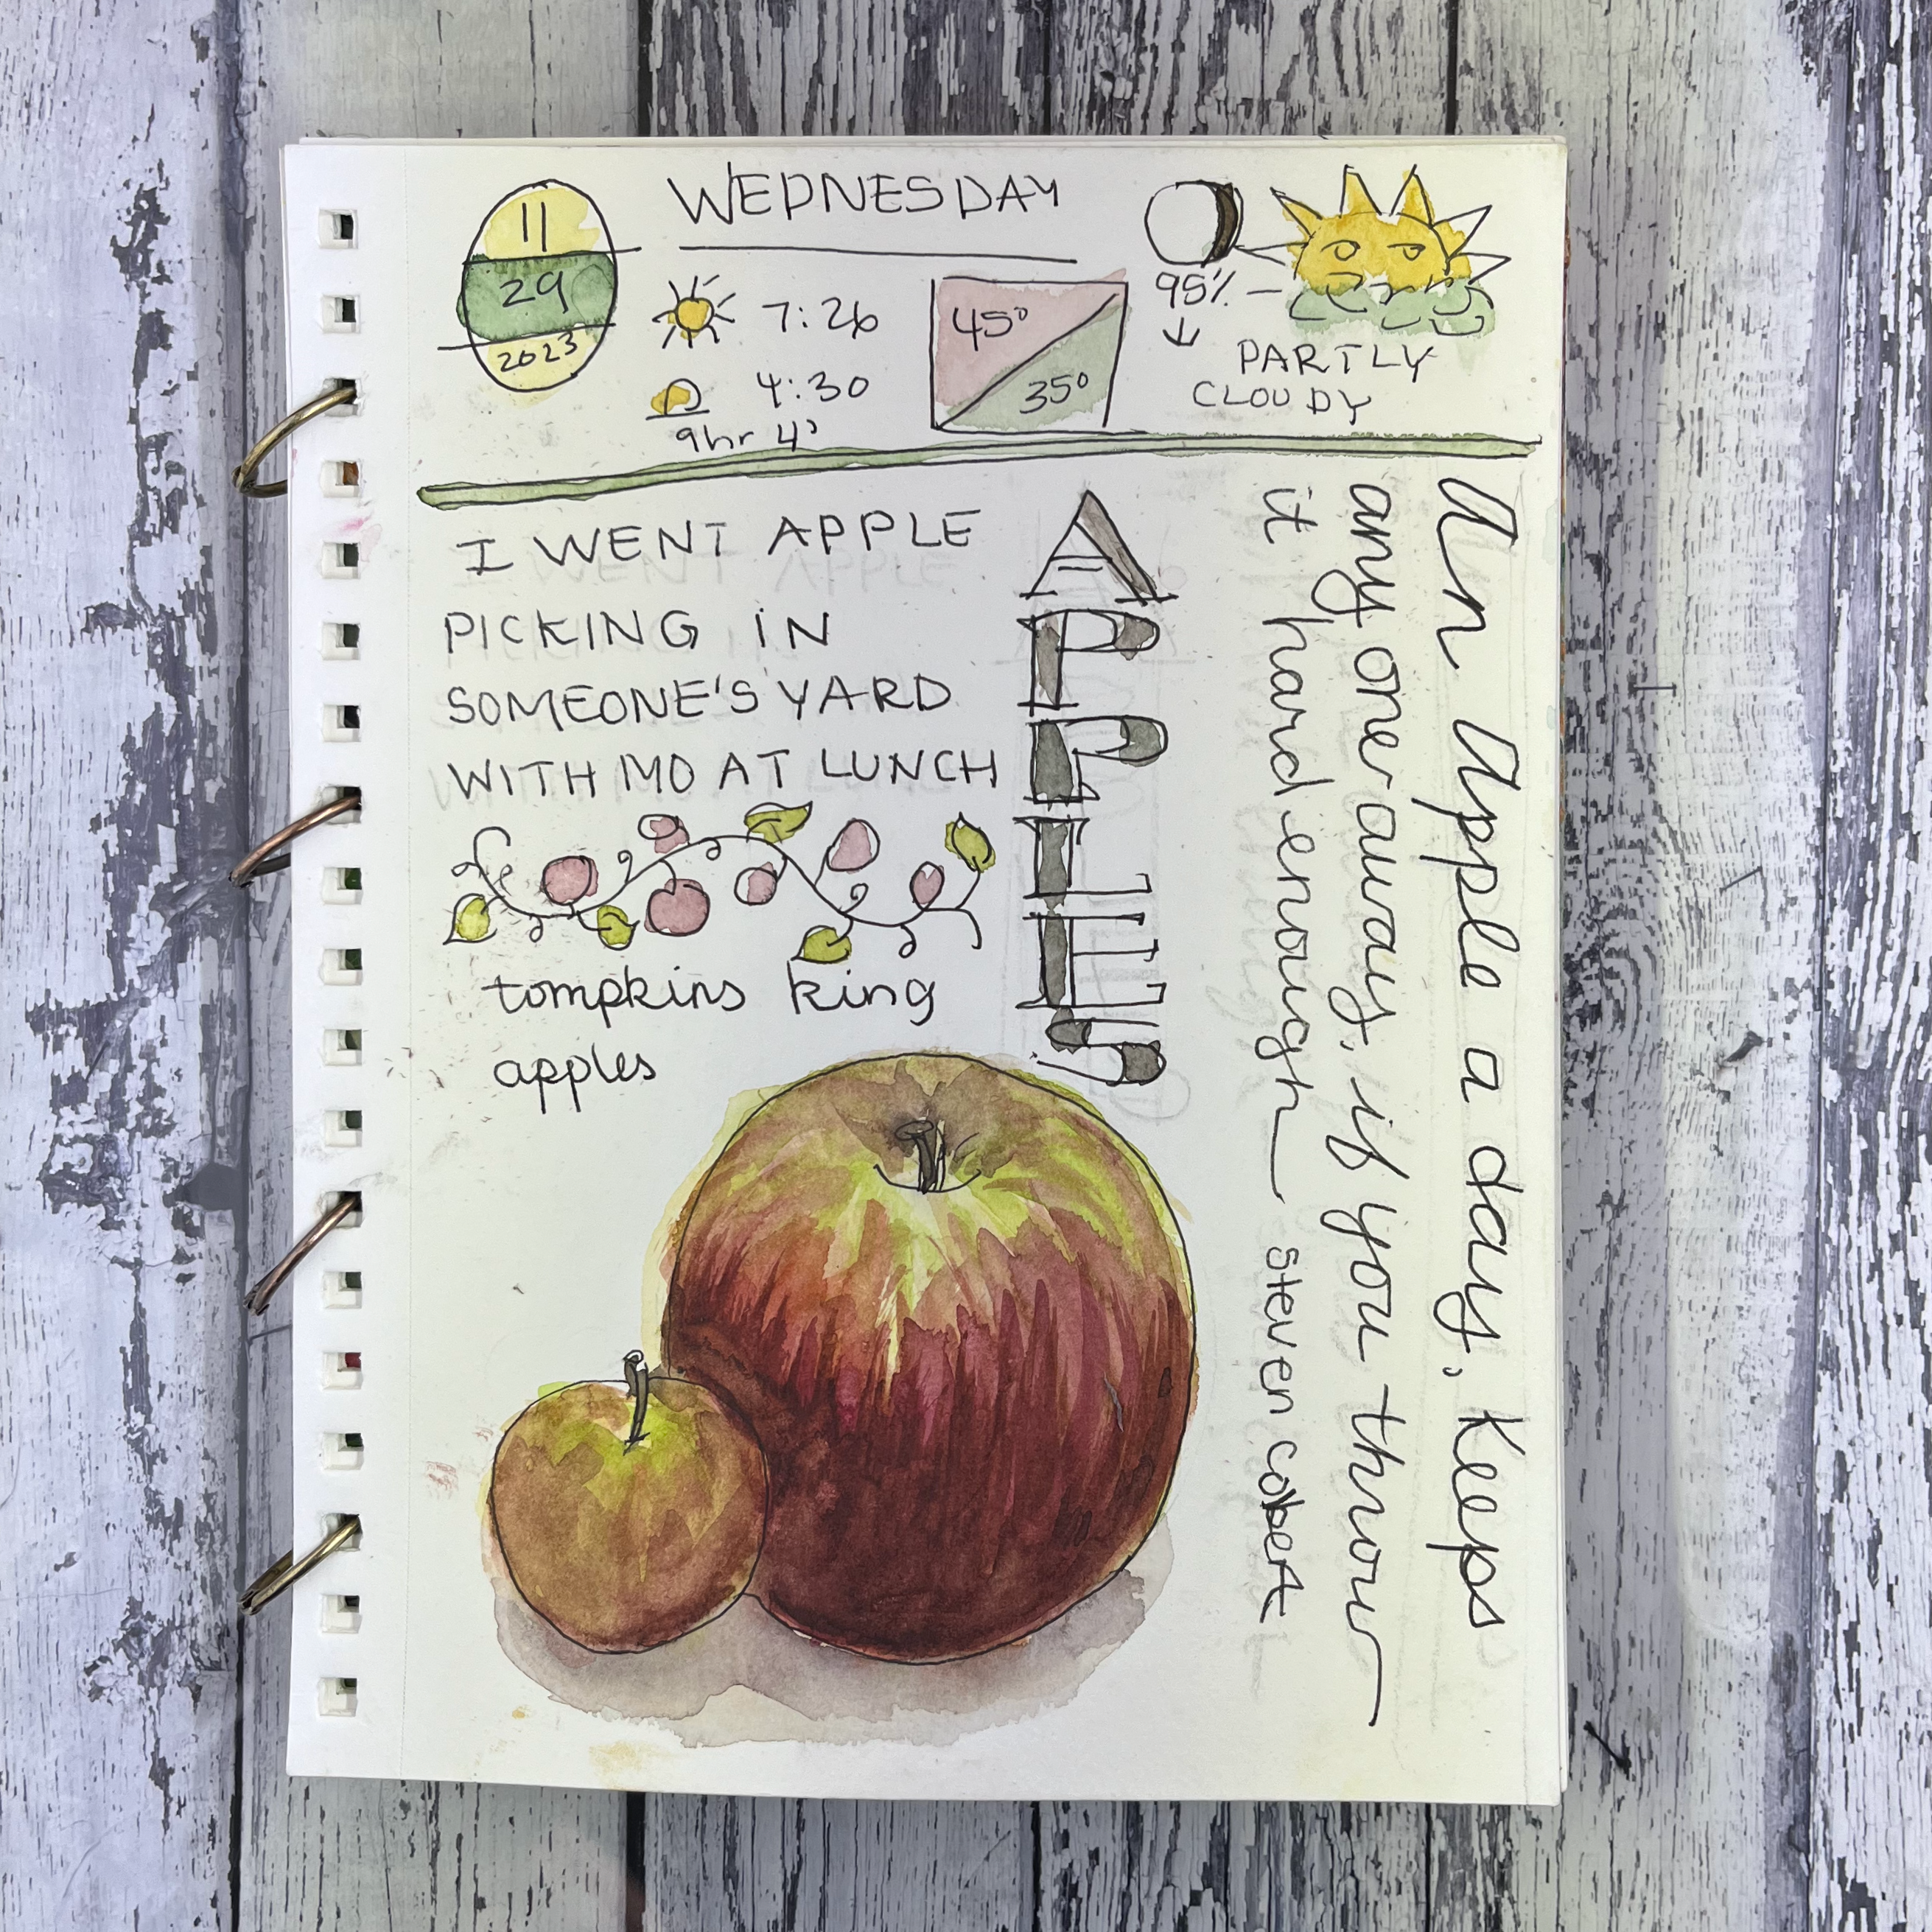 11
29
2023
WEDNESDAY
7:26
4:30
9hr 4'
45°
35°
95% -
↓
PARTLY
CLOUDY
I WENT APPLE
PICKING IN
SOMEONE'S YARD
WITH MO AT LUNCH
APPLES
tompkins king
apples
An Apple a day. Keeps
any one away, if you throw
it hard enough — Steven Colbert